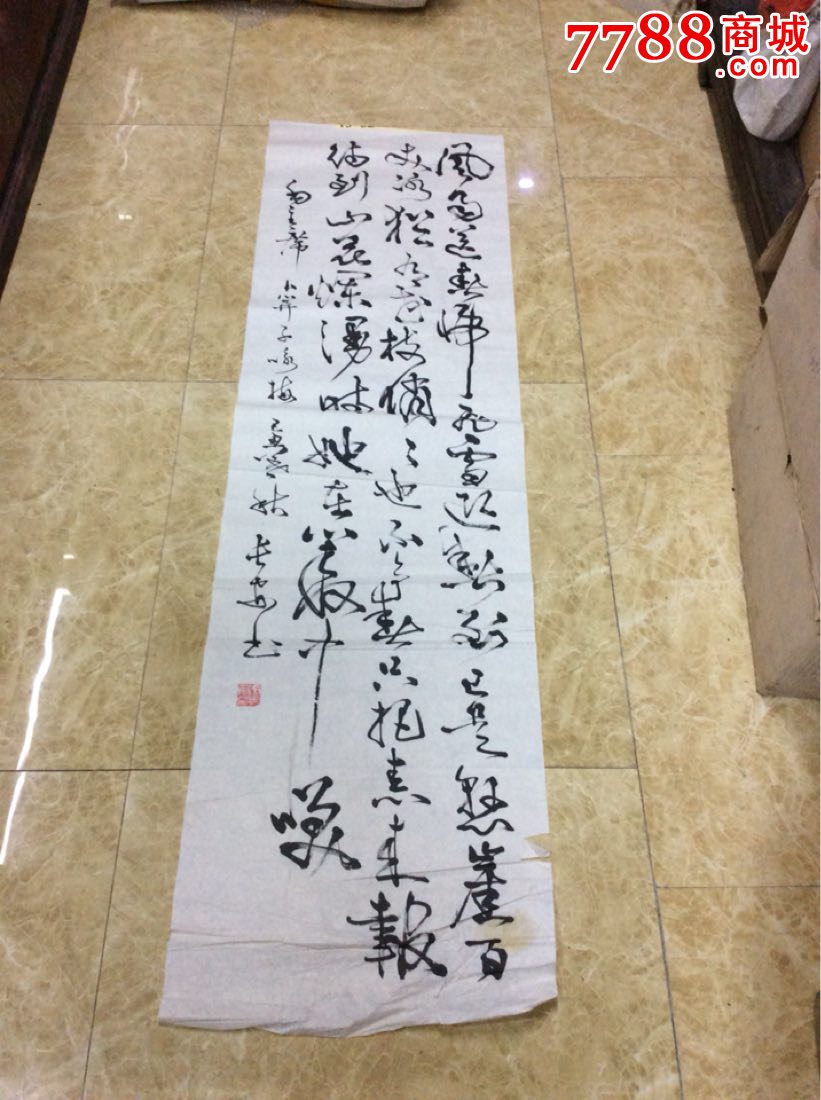 7788商城
.com
風雨送春歸飛雪迎春到已是懸崖百
丈冰猶有花枝俏々也不争春只把春来報
待到山花爛漫时她在叢中笑
毛主席 卜算子咏梅 己丑 秋 长安书